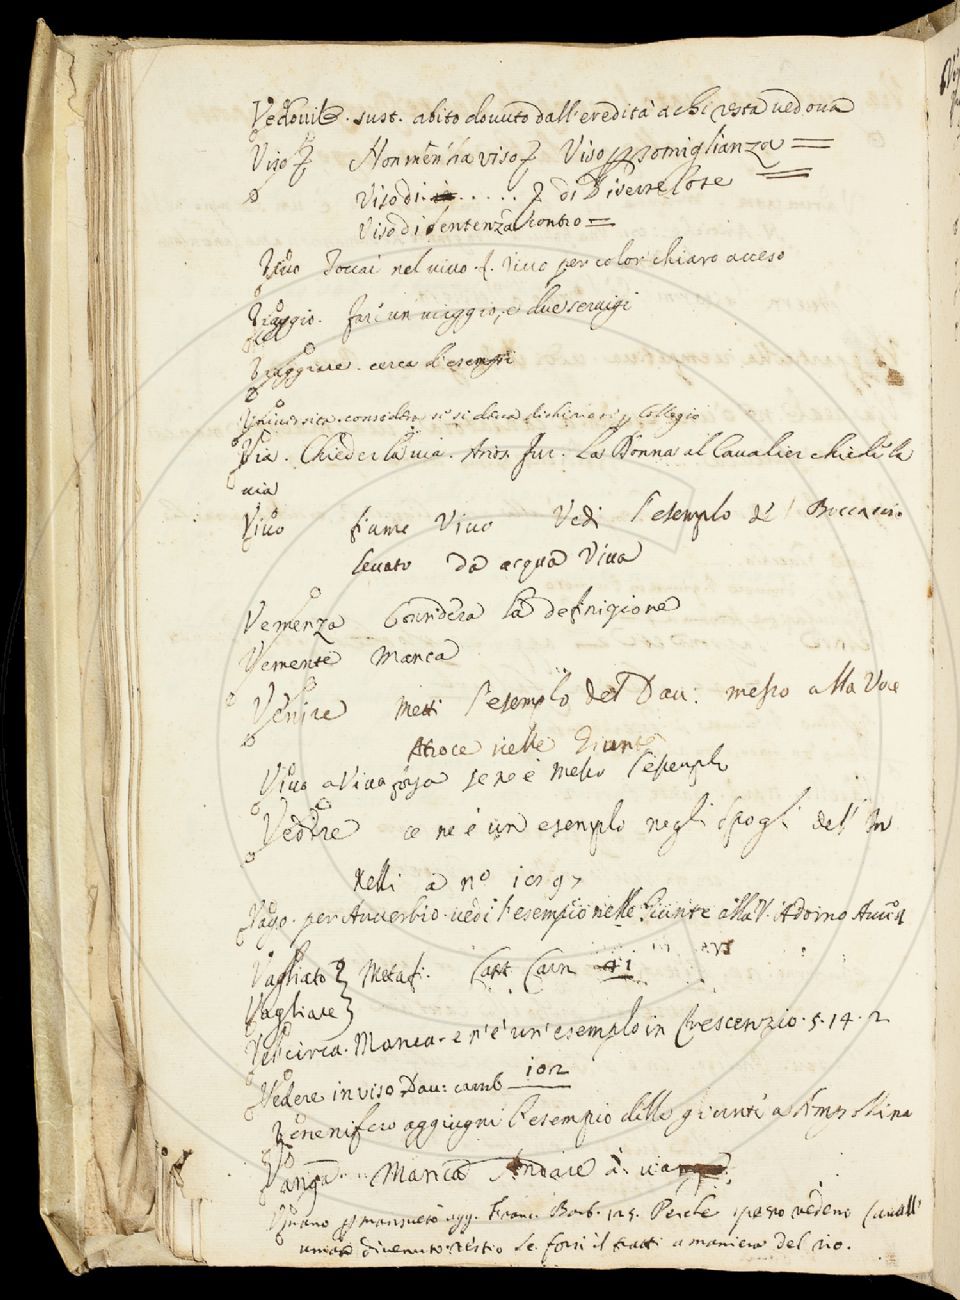 Vedovile. sust. abito dovuto dall'eredità a chi resta vedova
Viso Non men ha viso Viso somiglianza =
Viso di ..... di Diverse Cose =
Viso di sentenza contro =
Vivo Toccai nel vivo. Vivo per color chiaro acceso
Viaggio. far un viaggio, e due servigi
Viaggiare. cerca l'esempio
Università. considera si Collegio
Via. Chieder la via. Arios. Fur. La Donna al Cavalier chiede la
via
Vivo fiume Vivo Vedi l'esemplo del Boccaccio.
levato da acqua Viva
Vemenza Considera la definizione
Vemente Manca
Venire Metti l'esemplo del Dav: messo alla Voce
Atroce nelle Giunte
Vivo a Viva forza se ne è messo l'esemplo
Vedere ce ne è un esemplo negli Spogli dell'
a nº
Vago. per Avverbio. vedi l'esempio nelle Giunte alla V. Adorno Avv.
Vagliato Metaf. Cant. Carn. 41
Vagliare
Vel circa. Manca. e n'è un'esemplo in Crescenzio. 5. 14. 2
Vedere in viso Dav: camb 102
Venenifero aggiugni l'esempio delle giunte a
Vanga. Manca Andare à
Umano mansueto agg. Franc. Barb. 125. Perchè spesso vedemo Cavall'
umano divenuto restio Se forsi il tratti a maniera del rio.